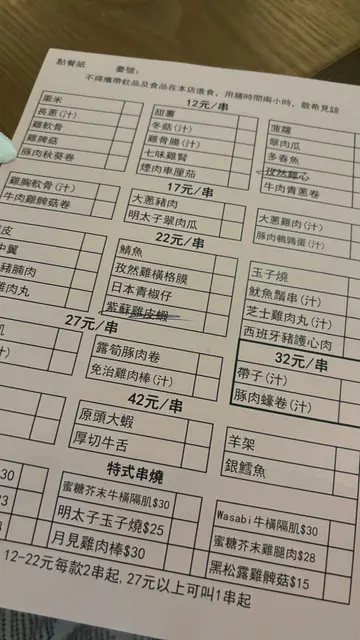 點餐紙 臺號:
不得攜帶飲品及食品在本店進食,用膳時間兩小時,敬希見諒
12元/串
粟米 甜薯 菠蘿
長蔥(汁) 冬菇(汁) 翠肉瓜
雞軟骨 雞骨腸(汁) 多春魚
雞髀菇 七味雞腎 孜然雞心
豚肉秋葵卷 煙肉車厘茄 牛肉青蔥卷
17元/串
雞胸軟骨(汁) 大蔥豬肉 大蔥雞肉(汁)
牛肉雞髀菇卷 明太子翠肉瓜 豚肉鵪鶉蛋(汁)
22元/串
皮 鯖魚 玉子燒
中翼 孜然雞橫格膜 魷魚鬚串(汁)
豬腩肉 日本青椒仔 芝士雞肉丸(汁)
雞肉丸 紫蘇雞皮蝦 西班牙豬護心肉
27元/串 32元/串
肌 露筍豚肉卷 帶子(汁)
汁) 免治雞肉棒(汁) 豚肉蠔卷(汁)
42元/串
原頭大蝦 羊架
厚切牛舌 銀鱈魚
特式串燒
$30 蜜糖芥末牛橫隔肌$30 Wasabi牛橫隔肌$30
明太子玉子燒$25 蜜糖芥末雞腿肉$28
月見雞肉棒$30 黑松露雞髀菇$15
12-22元每款2串起,27元以上可叫1串起